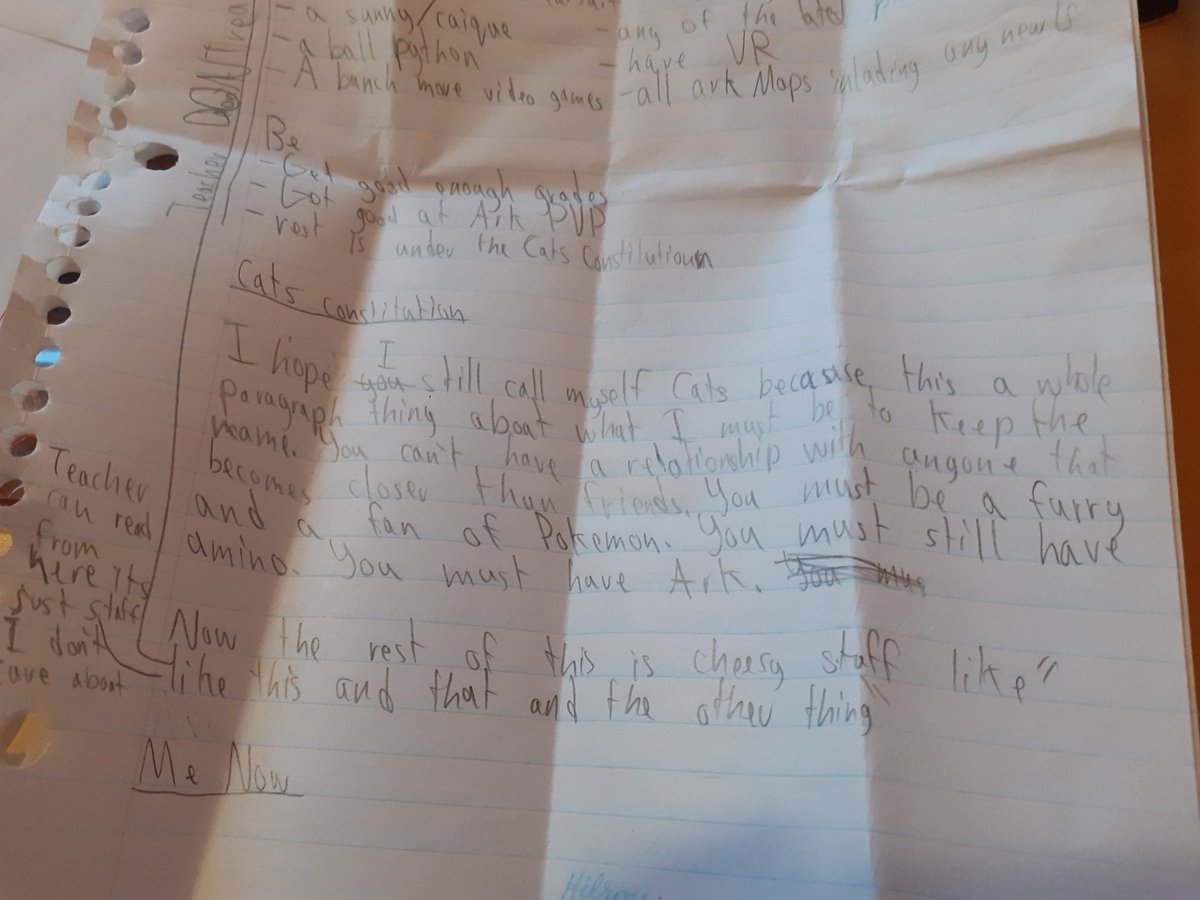 - a sunny/caique
- any of the
- a ball python
- have VR
- A bunch more video games
- all ark Maps inlading any new
Be
- Get good enough grades
- Got good at Ark PVP
- rest is under the Cats Constitutioun
Cats constitution
I hope you I still call myself Cats because this a whole
paragraph thing about what I must be to keep the
name. You can't have a relationship with anyone that
becomes closer than friends. You must be a furry
and a fan of Pokemon. You must still have
amino. You must have Ark. You mus
Now the rest of this is cheesy staff like"
like this and that and the other thing"
Me Now
Teacher
Teacher
can read
from
here its
just staff
I don't
care about
Hilroy